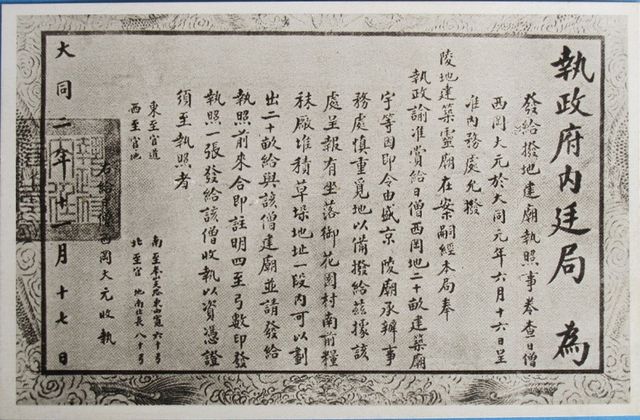 執政府內廷局 為
發給撥地建廟執照事卷查日僧
西岡大元於大同元年六月十六日呈
准內務處允撥
陵地建築靈廟在案嗣經本局奉
執政諭准賞給日僧西岡地二十畝建築廟
宇等因即令由盛京 陵廟承辦事
務處慎重覓地以備撥給茲據該
處呈報有坐落御花園村南前糧
秣廠堆積草垛地址一段內可以劃
出二十畝給與該僧建廟並請發給
執照前來合即註明四至弓數印發
執照一張發給該僧收執以資憑證
須至執照者
東至官道 南至 大路東 寬六十弓
西至官地 北至官 地南北長八十弓
右給 西岡大元收執
大同二年十一月十七日